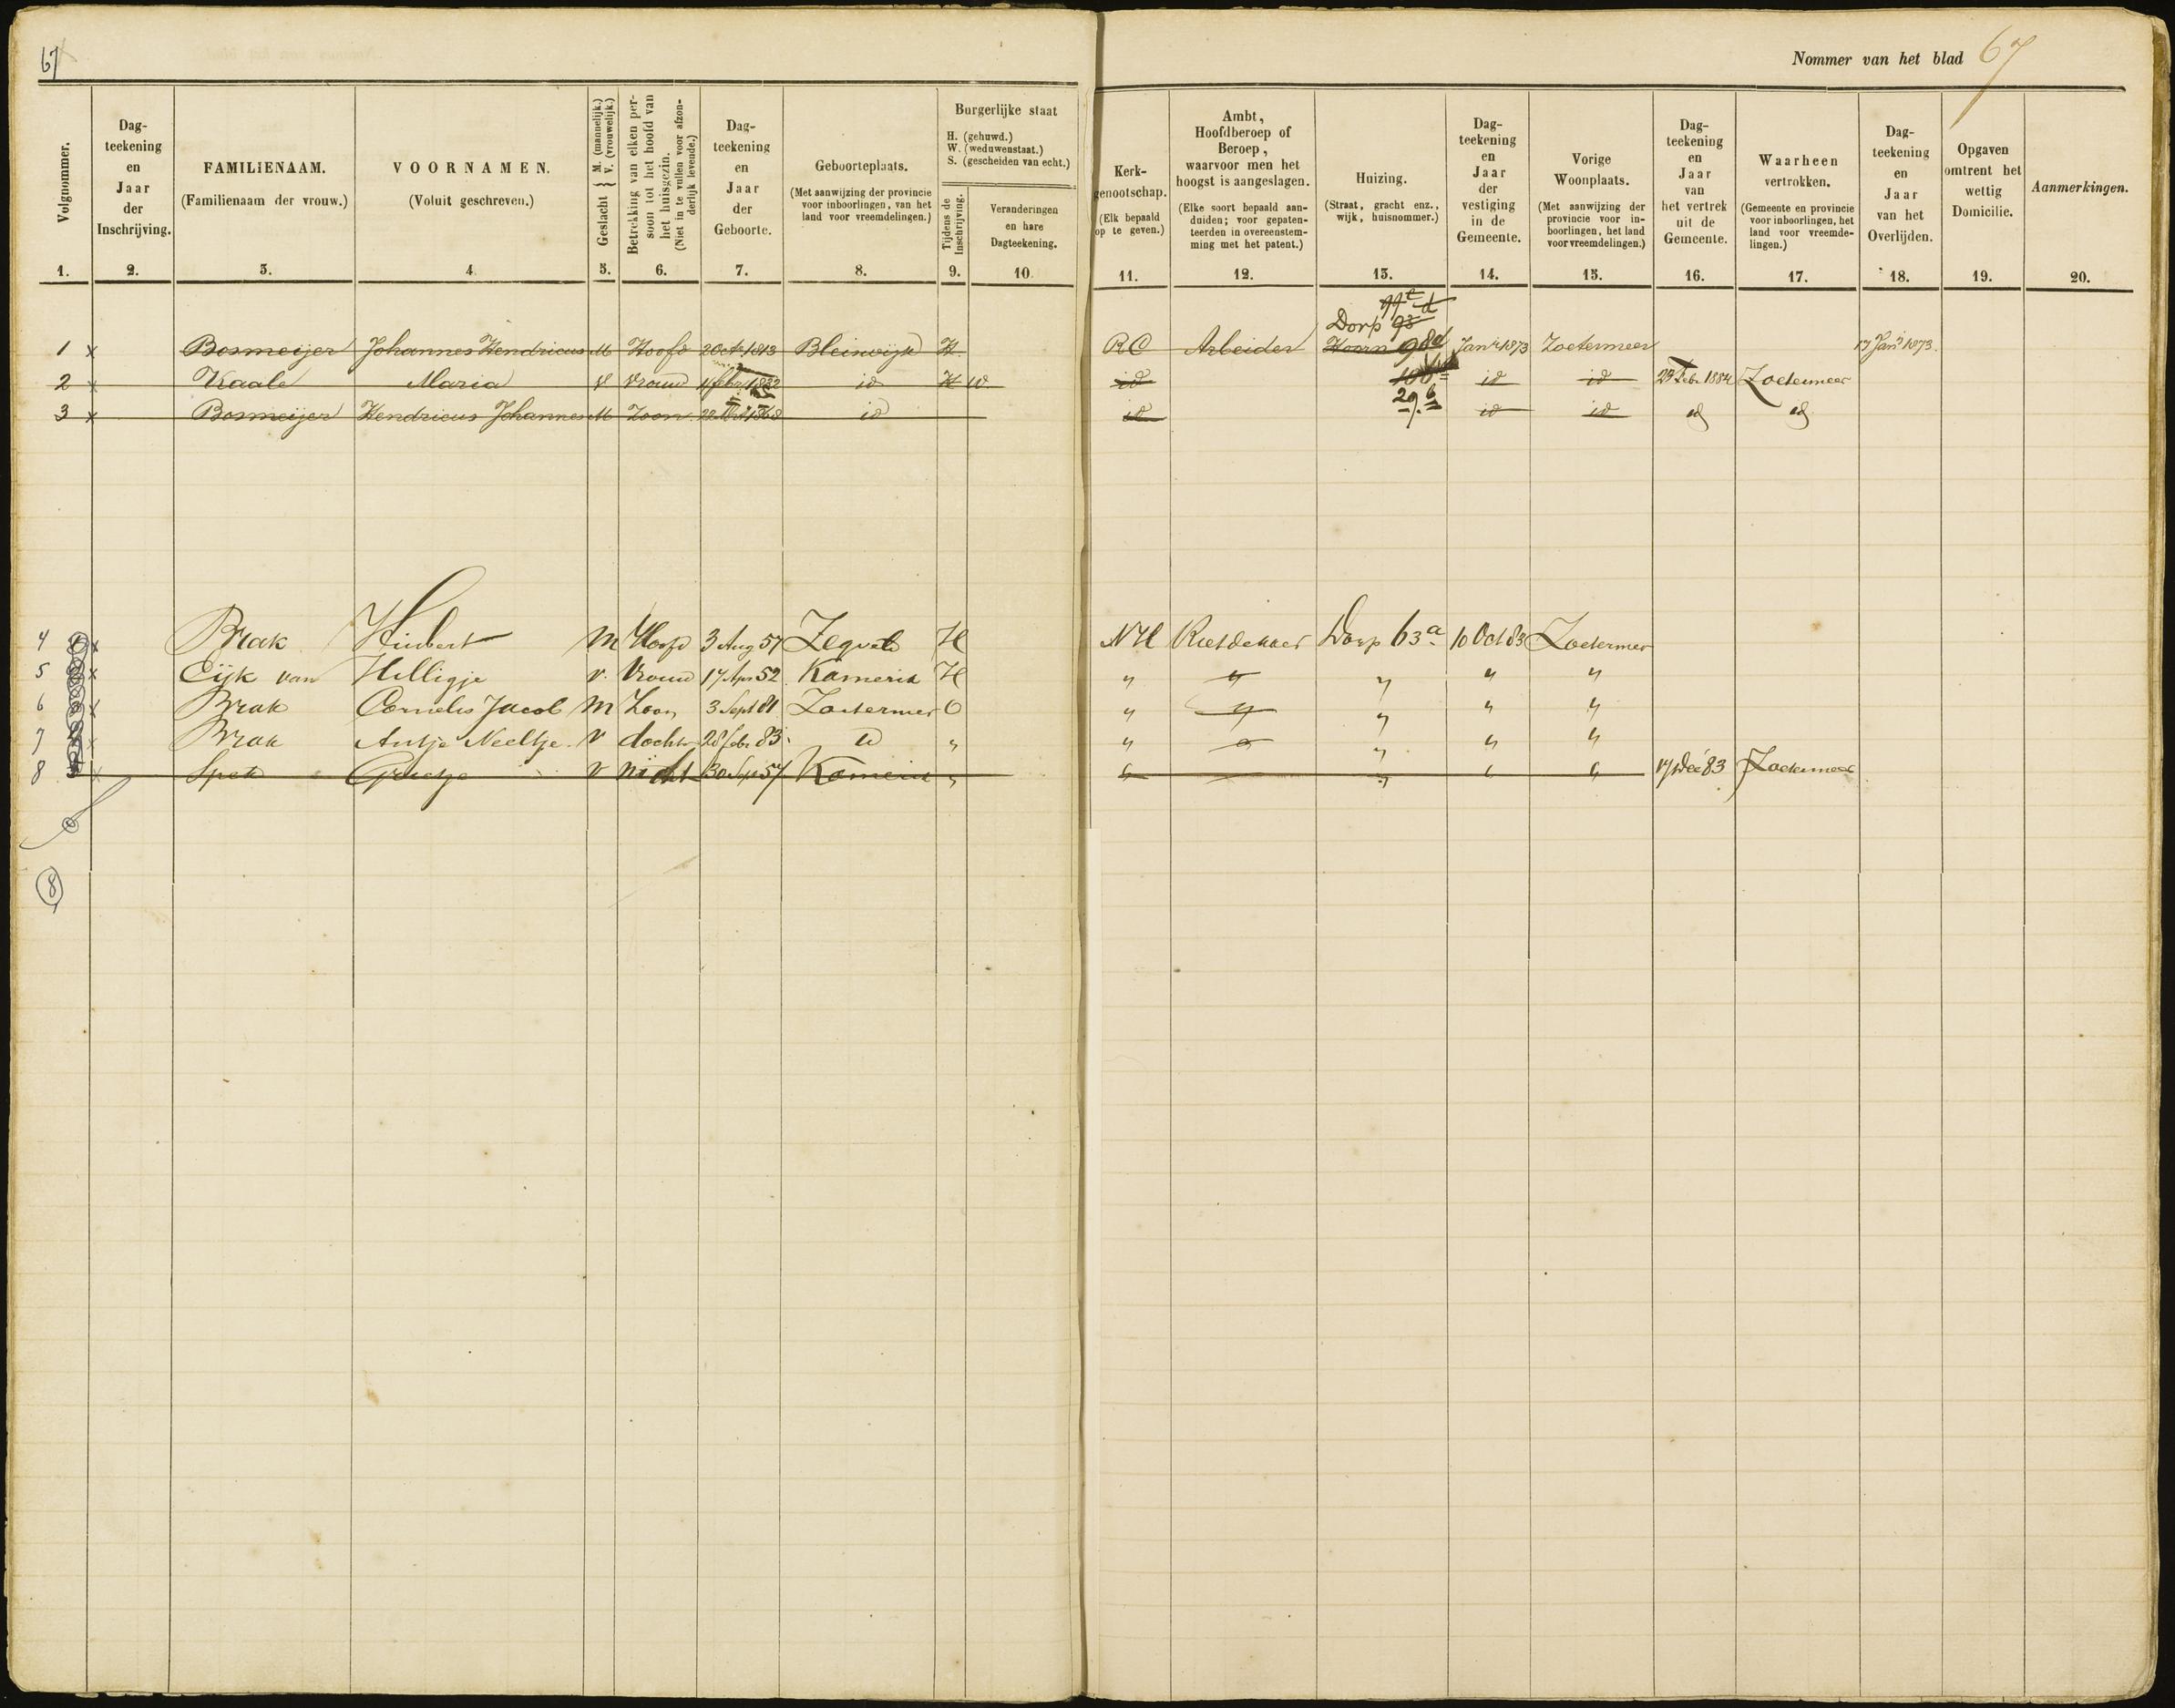 67
Nommer van het blad 67
Volgnommer.
1.
Dag-
teekening
en
Jaar
der
Inschrijving.
2.
FAMILIENAAM.
(Familienaam der vrouw.)
3.
VOORNAMEN.
(Voluit geschreven.)
4
Geslacht } M. (mannelijk.) V. (vrouwelijk.)
5.
Betrekking van elken per-
soon tot het hoofd van
het huisgezin.
(Niet in te vullen voor afzon-
derlijk levende.)
6.
Dag-
teekening
en
Jaar
der
Geboorte.
7.
Geboorteplaats.
(Met aanwijzing der provincie
voor inboorlingen, van het
land voor vreemdelingen.)
8.
Burgerlijke staat
H. (gehuwd.)
W. (weduwenstaat.)
S. (gescheiden van echt.)
Tijdens de
Inschrijving.
9.
Veranderingen
en hare
Dagteekening.
10.
Kerk-
genootschap.
(Elk bepaald
op te geven.)
11.
Ambt,
Hoofdberoep of
Beroep,
waarvoor men het
hoogst is aangeslagen.
(Elke soort bepaald aan-
duiden; voor gepaten-
teerden in overeenstem-
ming met het patent.)
12.
Huizing.
(Straat, gracht enz.,
wijk, huisnommer.)
13.
Dag-
teekening
en
Jaar
der
vestiging
in de
Gemeente.
14.
Vorige
Woonplaats.
(Met aanwijzing der
provincie voor in-
boorlingen, het land
voor vreemdelingen.)
15.
Dag-
teekening
en
Jaar
van
het vertrek
uit de
Gemeente.
16.
Waarheen
vertrokken.
(Gemeente en provincie
voor inboorlingen, het
land voor vreemde-
lingen.)
17.
Dag-
teekening
en
Jaar
van het
Overlijden.
18.
Opgaven
omtrent het
wettig
Domicilie.
19.
Aanmerkingen.
20.
Dorp
1 x Bosmeijer Johannes Hendricus M Hoofd 2 Oct 1813 Bleiswijk H RC Arbeider Hoorn 98d Jan 1873 Zoetermeer 17 Jan 1873.
2 x Kaale Maria V Vrouw 1832 id H W id id id Febr 1884 Zoetermeer
3 x Bosmeijer Hendricus Johannes M Zoon 1868 id id 29.b id id id id
4 x Brak Huibert M Hoofd 3 Aug 57 Zegveld H NH Rietdekker Dorp 63a 10 Oct 83 Zoetermeer
5 x Eijk van Hilligje v. Vrouw 17 Apr 52 Kamerik H " " " " "
6 x Brak Cornelis Jacob M Zoon 3 Sept 81 Zoetermeer O " " " " "
7 x Brak Antje Neeltje v dochter 28 febr 83 id " " " " " "
8 x Spek Grietje v nicht 30 57 Kamerik " " " " " 17 Dec 83 Zoetermeer
8